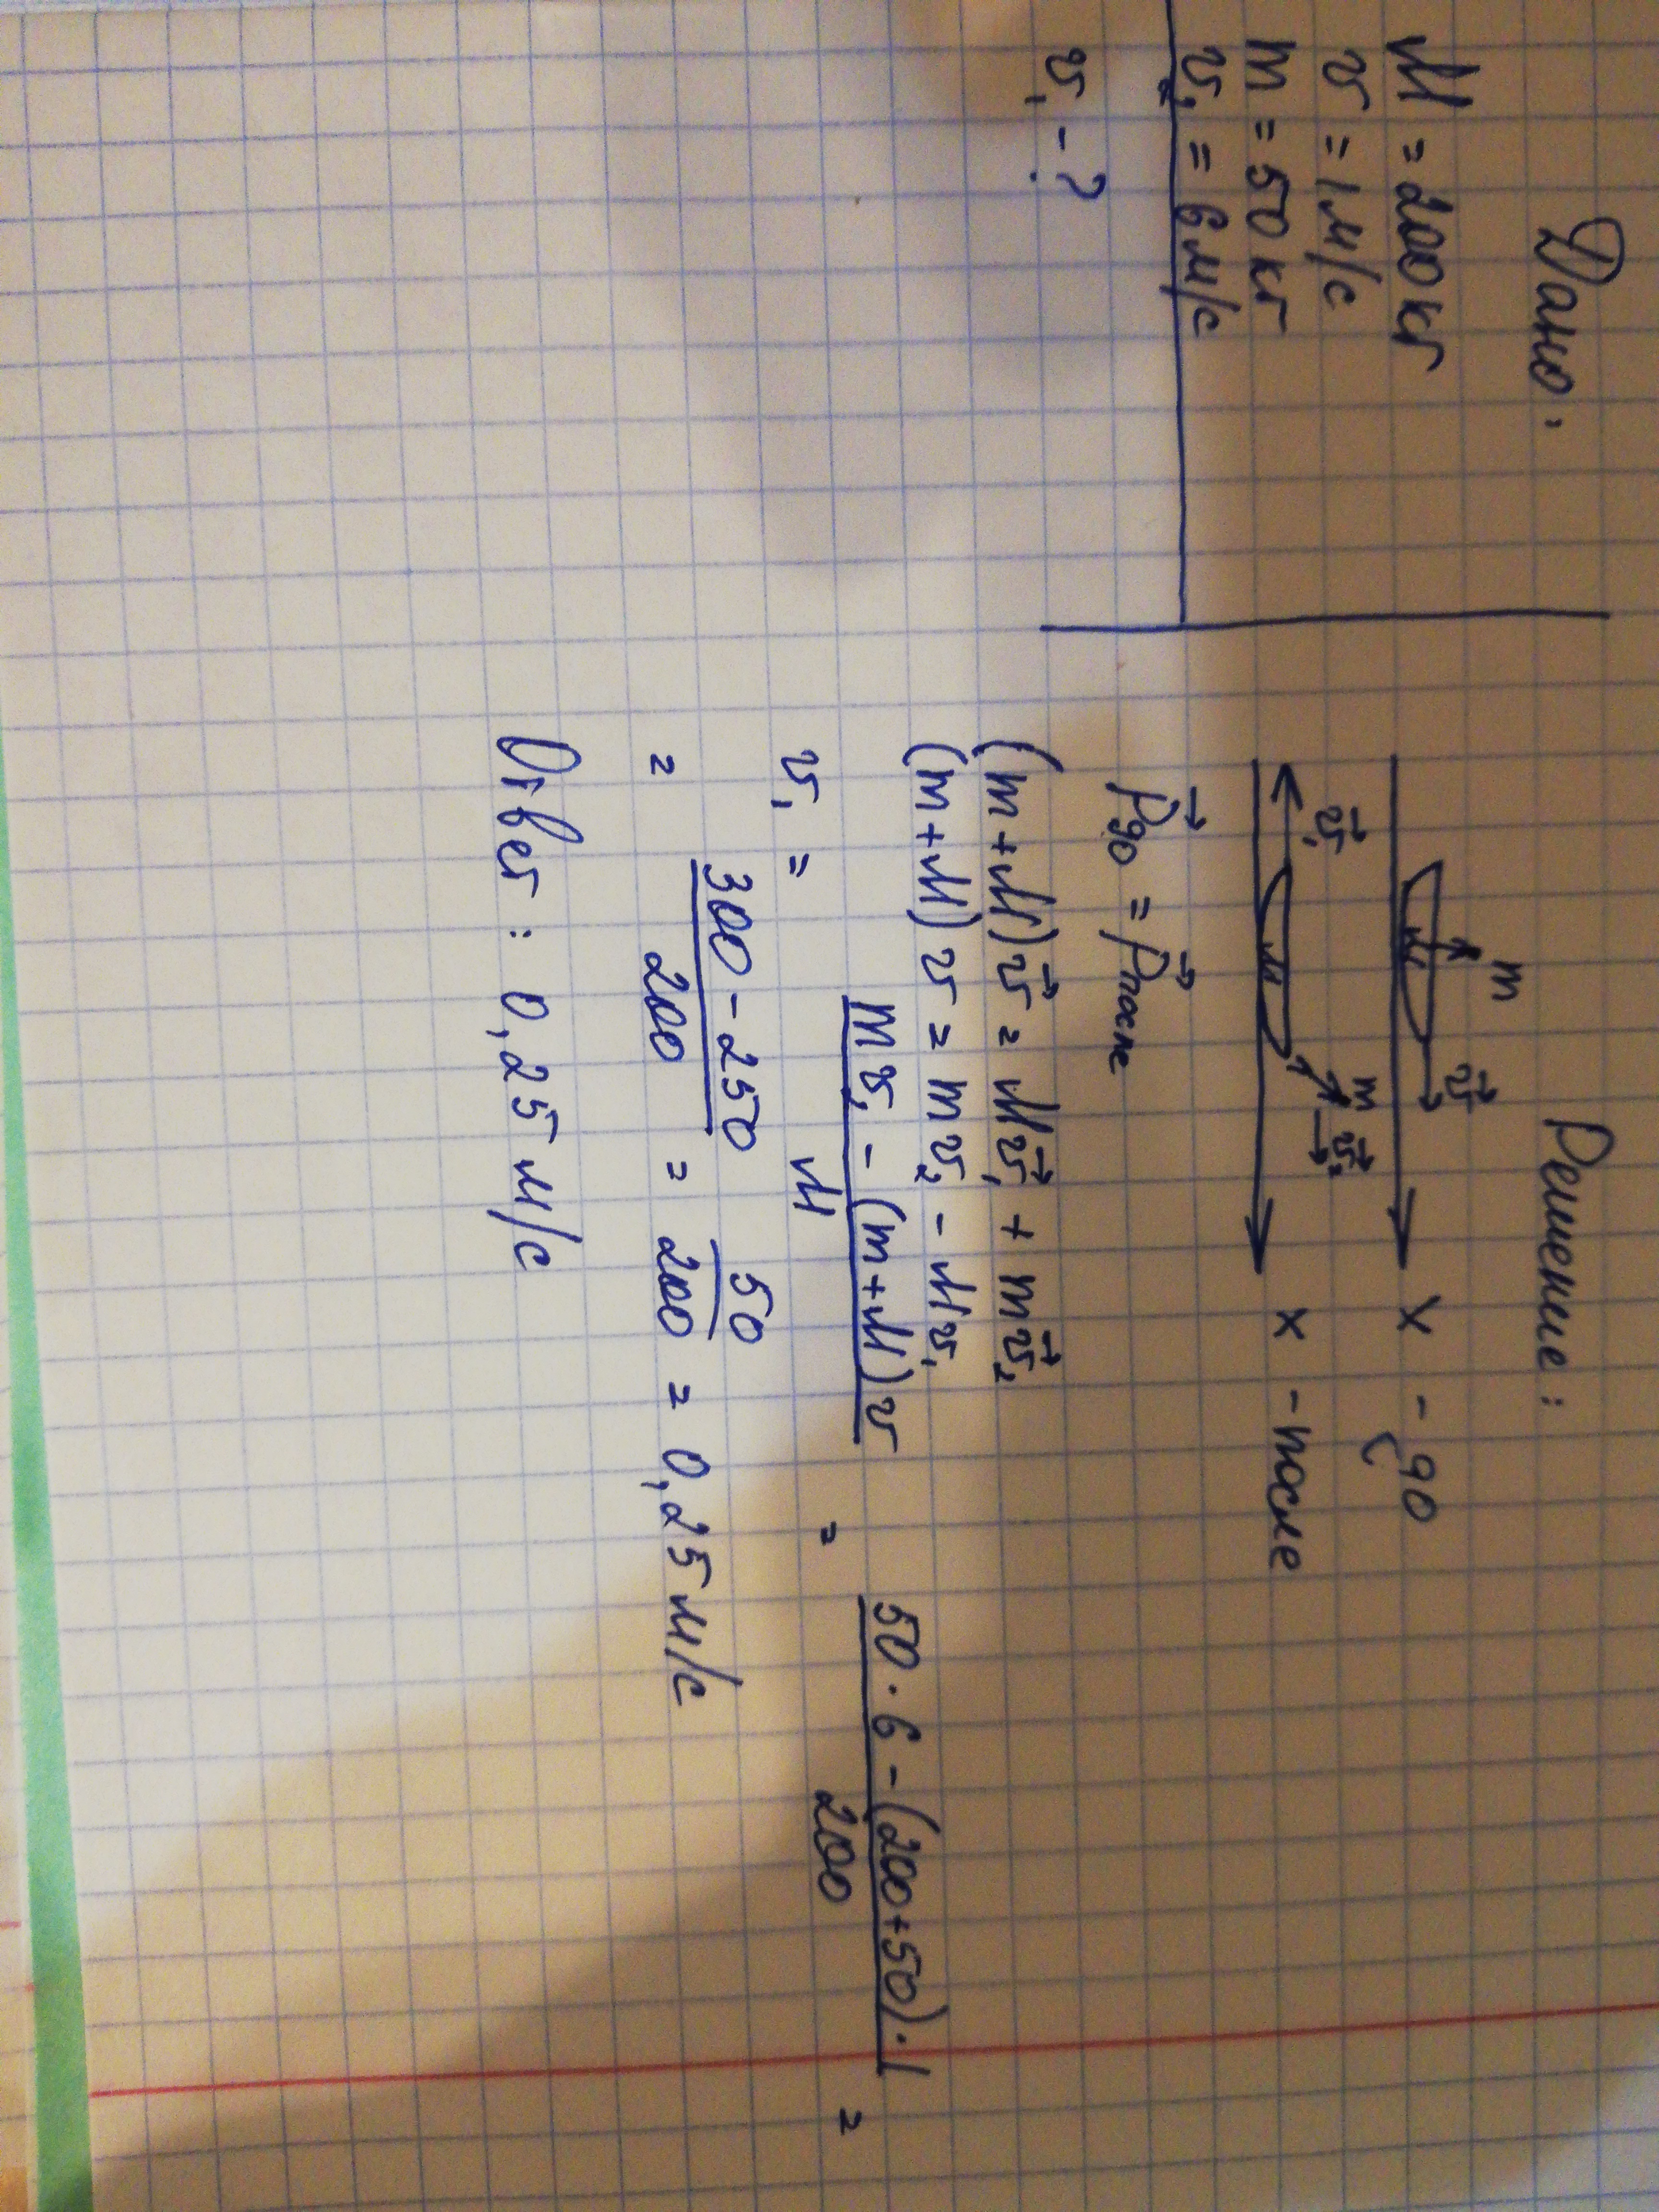 Дано:
M = 200 кг
v = 1 м/с
m = 50 кг
v₂ = 6 м/с
v₁ - ?
Решение:
m
M v⃗ x - до
v⃗₁ M m v⃗₂ x - после
p⃗до = p⃗после
(m + M) v⃗ = M v⃗₁ + m v⃗₂
(m + M) v = m v₂ - M v₁
v₁ = (m v₂ - (m + M) v) / M = (50 · 6 - (200 + 50) · 1) / 200 =
= (300 - 250) / 200 = 50 / 200 = 0,25 м/с
Ответ: 0,25 м/с